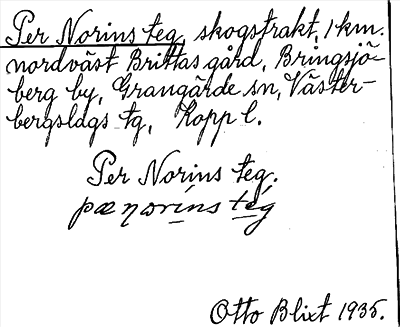 Per Norins teg, skogstrakt, 1 km.
nordväst Brittas gård, Bringsjö-
berg by, Grangärde sn, Väster-
bergslags tg, Kopp l.
Per Norins teg.
pæ ꞃorins teg
Otto Blixt 1935.